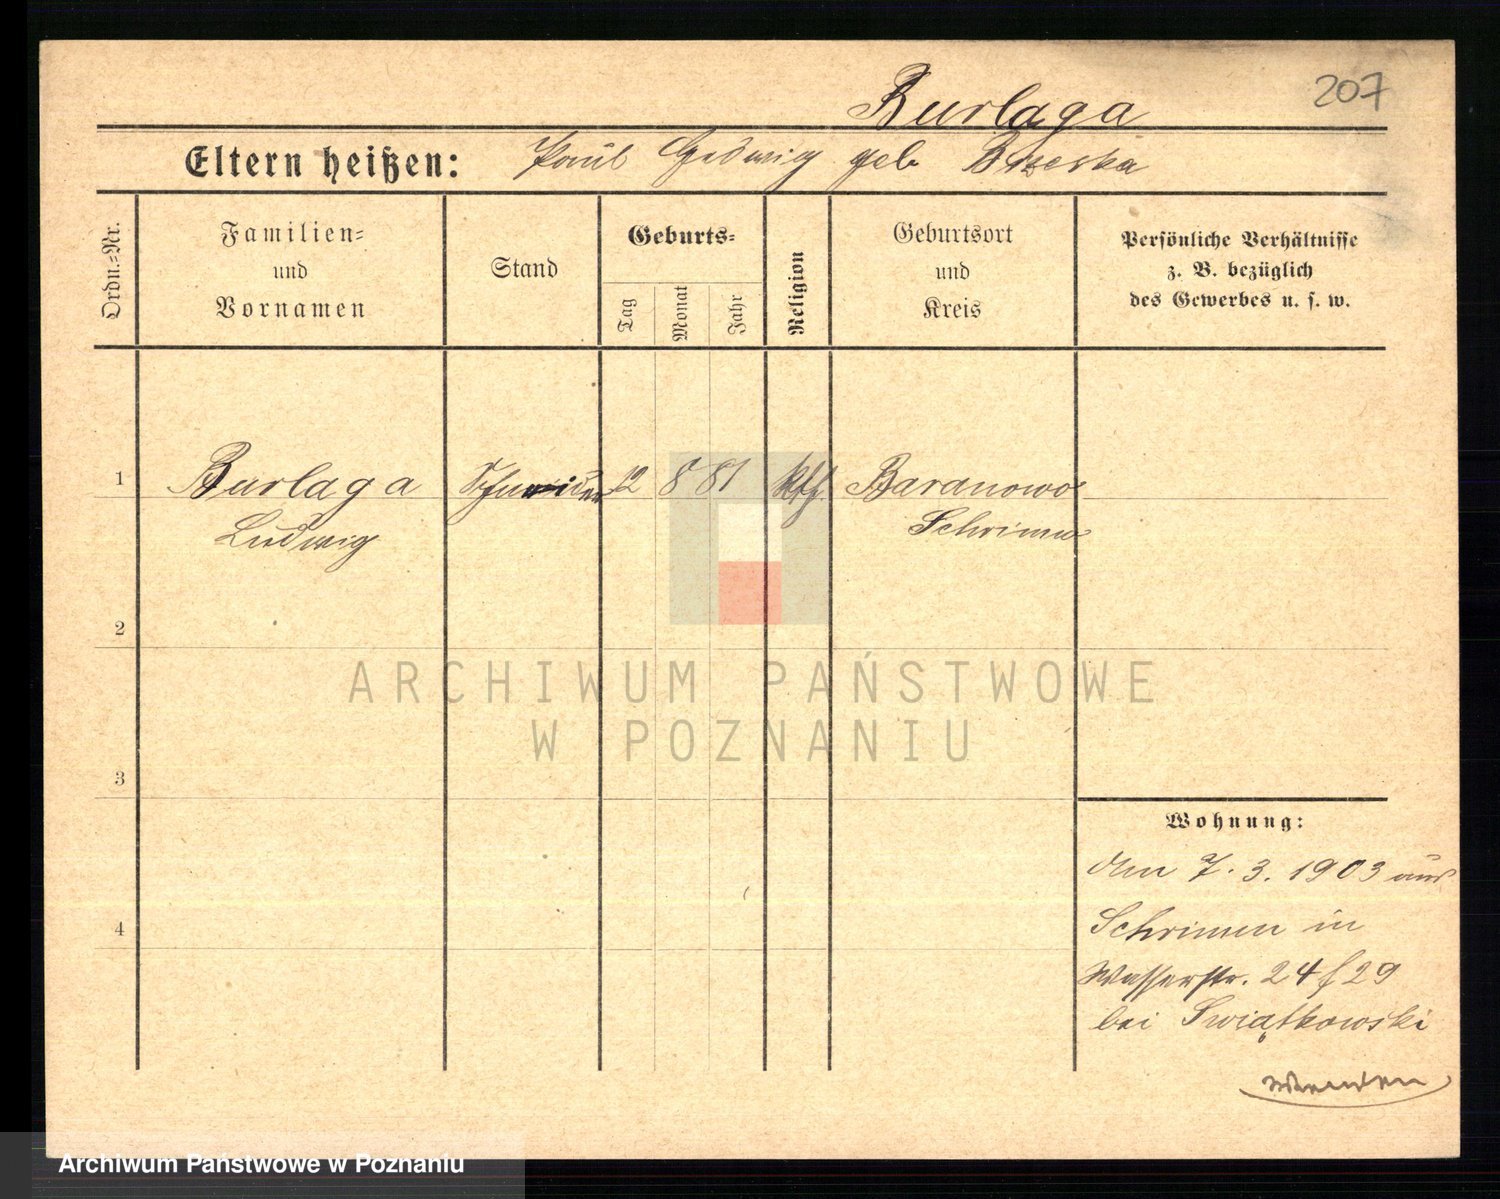 207
Burlaga
Eltern heißen: Paul Hedwig geb. Brzeska
Ordn.=Nr.
Familien=
und
Vornamen
Stand
Geburts=
Tag
Monat
Jahr
Religion
Geburtsort
und
Kreis
Persönliche Verhältnisse
z. B. bezüglich
des Gewerbes u. s. w.
1 Burlaga Schneider 12 8 81 kth Baranowo
Ludwig Schrimm
2
3
4
Wohnung:
Am 7. 3. 1903 aus
Schrimm in
Wasserstr. 24/29
bei Swiątkowski
Wenden
ARCHIWUM PAŃSTWOWE
W POZNANIU
Archiwum Państwowe w Poznaniu